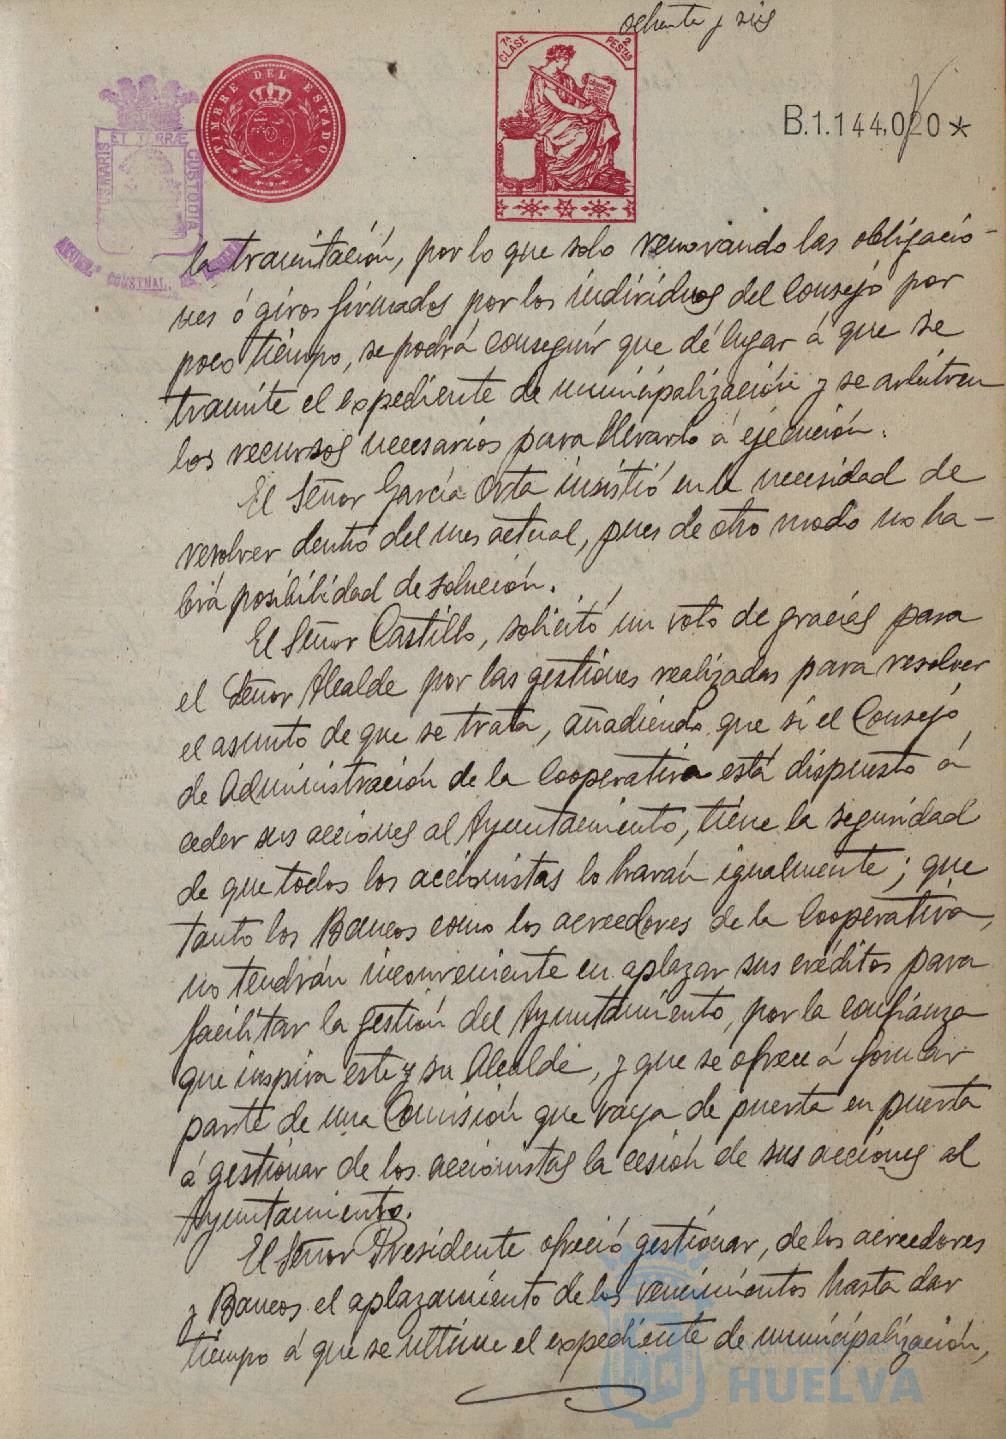 ochenta y seis
7ª CLASE
2 PESTAS
TIMBRE DEL ESTADO
ET TERRÆ
MARIS
CUSTODIA
CONSTNAL.
B.1.144,020*
la tramitación, por lo que solo renovando las obligacio-
nes ó giros firmados por los individuos del Consejo por
poco tiempo, se podrá conseguir que dé lugar á que se
tramite el expediente de municipalización y se arbitren
los recursos necesarios para llevarlo á ejecución.
El Señor García Orta insistió en la necesidad de
resolver dentro del mes actual, pues de otro modo no ha-
brá posibilidad de solución.
El Señor Castillo, solicitó un voto de gracias para
el Señor Alcalde por las gestiones realizadas para resolver
el asunto de que se trata, añadiendo que si el Consejo
de Administración de la Cooperativa está dispuesto á
ceder sus acciones al Ayuntamiento, tiene la seguridad
de que todos los accionistas lo harán igualmente; que
tanto los Bancos como los acreedores de la Cooperativa,
no tendrán inconveniente en aplazar sus créditos para
facilitar la gestión del Ayuntamiento, por la confianza
que inspira este y su Alcalde, y que se ofrece á formar
parte de una Comisión que vaya de puerta en puerta
á gestionar de los accionistas la cesión de sus acciones al
Ayuntamiento.
El Señor Presidente ofreció gestionar, de los acreedores
y Bancos el aplazamiento de los vencimientos hasta dar
tiempo á que se ultime el expediente de municipalización,
HUELVA